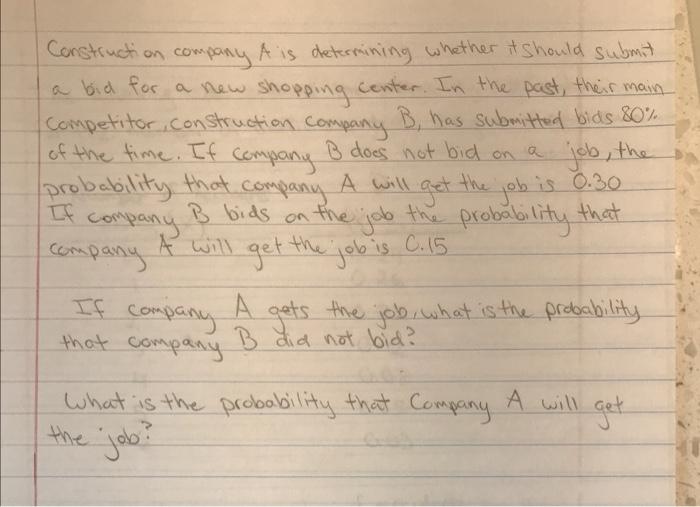 Construction company A is determining whether it should submit
a bid for a new shopping center. In the past, their main
competitor, construction company B, has submitted bids 80%
of the time. If company B does not bid on a job, the
probability that company A will get the job is 0.30
If company B bids on the job the probability that
company A will get the job is 0.15
If company A gets the job, what is the probability
that company B did not bid?
What is the probability that Company A will get
the job?